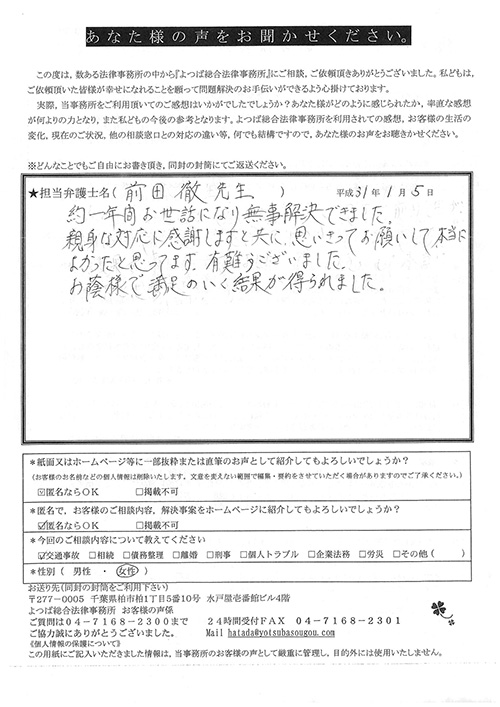 あなた様の声をお聞かせください。
この度は，数ある法律事務所の中から『よつば総合法律事務所』にご相談，ご依頼頂きありがとうございました。私どもは，
ご依頼頂いた皆様が幸せになれることを願って問題解決のお手伝いができるよう心掛けております。
実際，当事務所をご利用頂いてのご感想はいかがでしたでしょうか？あなた様がどのように感じられたか，率直な感想
が何よりの力となり，また私どもの今後の参考となります。よつば総合法律事務所を利用されての感想，お客様の生活の
変化，現在のご状況，他の相談窓口との対応の違い等，何でも結構ですので，あなた様のお声をお聴きかせください。
※どんなことでもご自由にお書き頂き，同封の封筒にてご返送ください。
★担当弁護士名（ 前田 徹 先生 ） 平成31年1月5日
約一年間お世話になり無事解決できました。
親身な対応に感謝しますと共に、思いきってお願いして本当に
よかったと思ってます。有難うございました。
お蔭様で満足のいく結果が得られました。
＊紙面又はホームページ等に一部抜粋または直筆のお声として紹介してもよろしいでしょうか？
（お客様のお名前などの個人情報は削除いたします。文意を変えない範囲で編集・要約をさせていただく場合がありますのでご了承ください。）
☑匿名ならＯＫ □掲載不可
＊匿名で，お客様のご相談内容，解決事案をホームページに紹介してもよろしいでしょうか？
☑匿名ならＯＫ □掲載不可
＊今回のご相談内容について教えてください
☑交通事故 □相続 □債務整理 □離婚 □刑事 □個人トラブル □企業法務 □労災 □その他（ ）
＊性別（ 男性 ・ 女性 ）
お送り先（同封の封筒をご利用下さい）
〒277-0005 千葉県柏市柏1丁目5番10号 水戸屋壱番館ビル4階
よつば総合法律事務所 お客様の声係
ご質問は04-7168-2300まで 24時間受付FAX 04-7168-2301
ご協力誠にありがとうございました。 Mail hatada@yotsubasougou.com
《個人情報の保護について》
この用紙にご記入いただきました情報は，当事務所のお客様の声として厳重に管理し，目的外には使用いたしません。